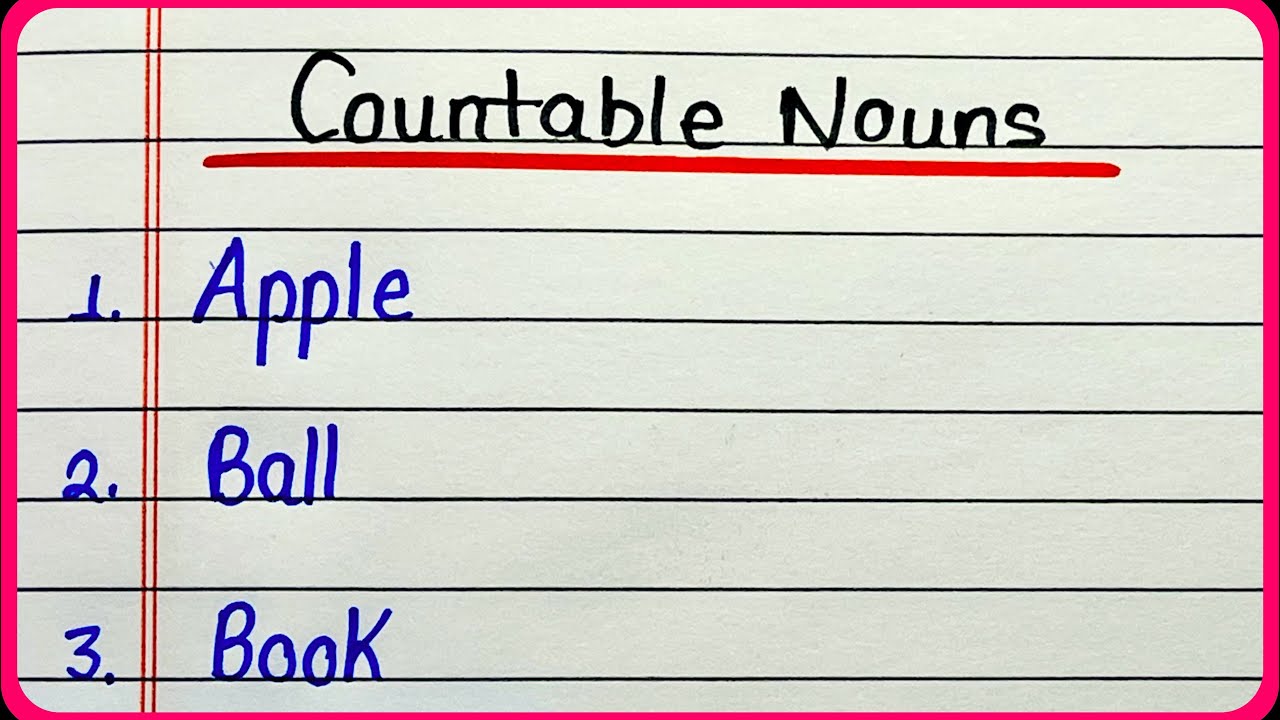 Countable Nouns
1. Apple
2. Ball
3. Book